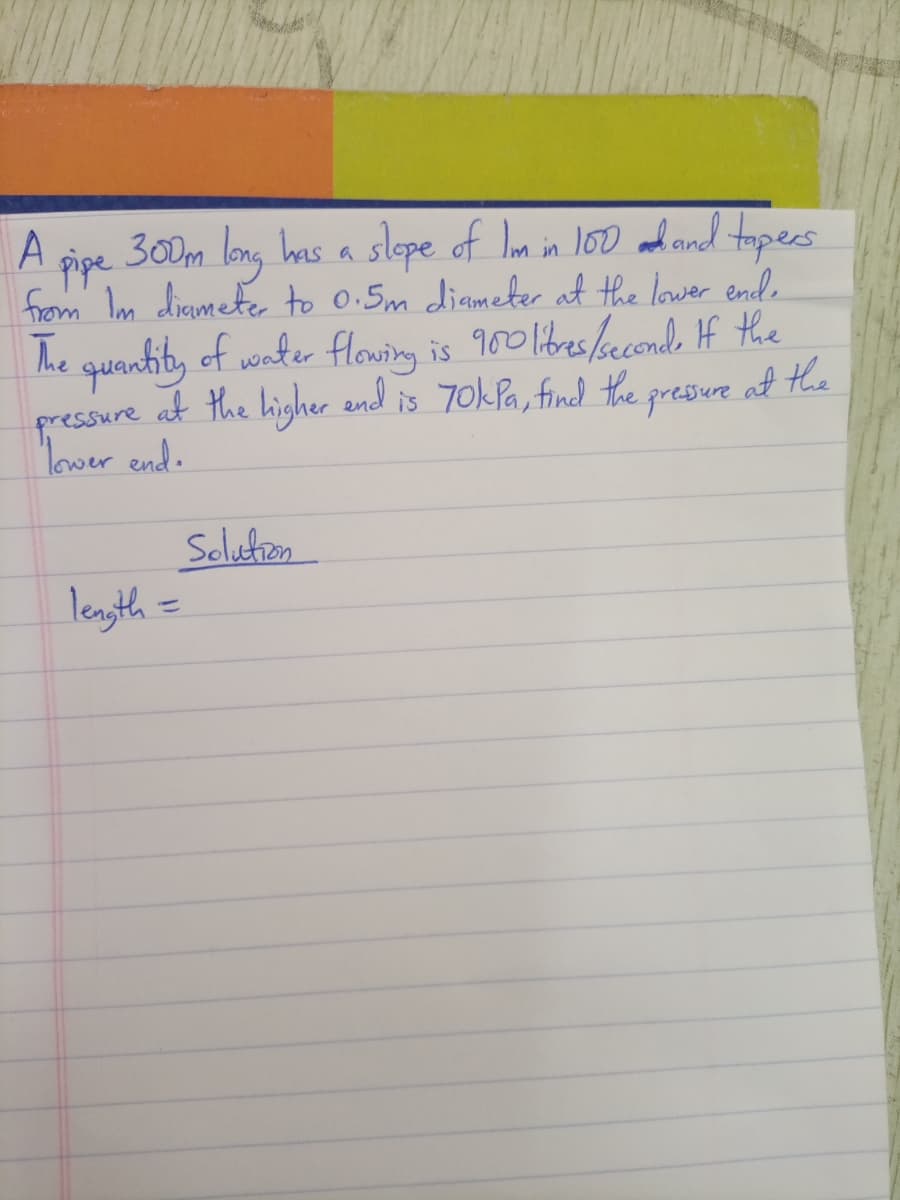 A pipe 300m long has a slope of 1m in 100 and tapers
from 1m diameter to 0.5m diameter at the lower end.
The quantity of water flowing is 900 litres/second. If the
pressure at the higher end is 70kPa, find the pressure at the
lower end.
Solution
length =